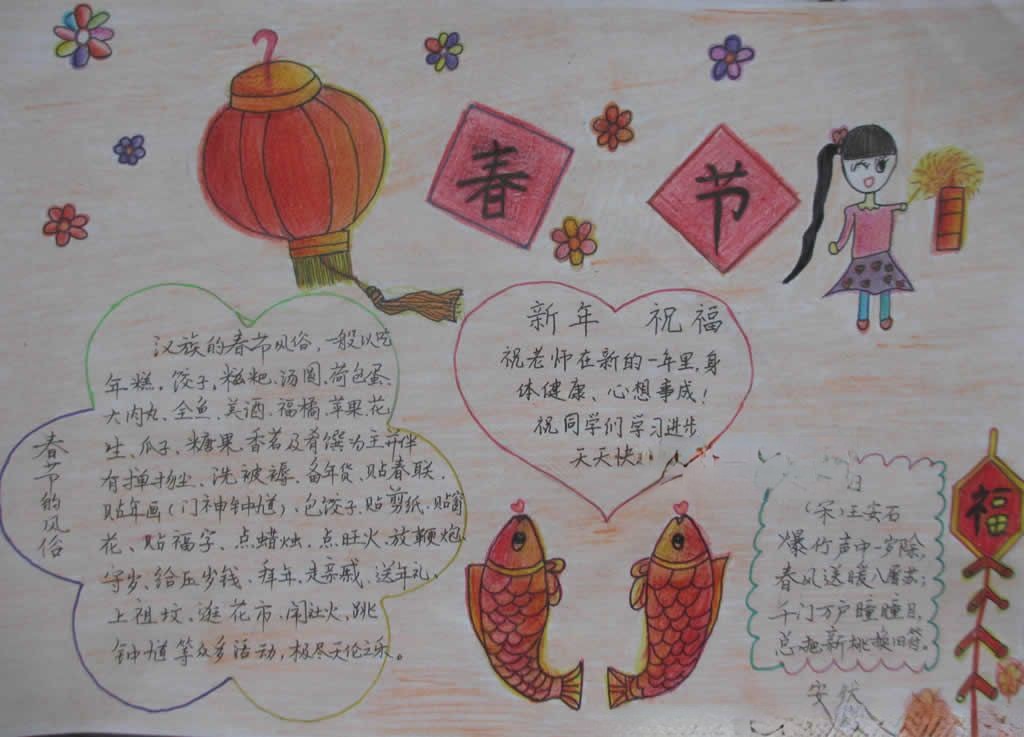 春 节
汉族的春节风俗,一般以吃
年糕、饺子、糍粑、汤圆、荷包蛋、
大肉丸、全鱼、美酒、福橘、苹果、花
生、瓜子、糖果、香茗及肴馔为主并伴
有掸扬尘、洗被褥、备年货、贴春联、
贴年画(门神钟馗)、包饺子、贴剪纸、贴窗
花、贴福字、点蜡烛、点旺火、放鞭炮、
守岁、给压岁钱、拜年、走亲戚、送年礼、
上祖坟、逛花市、闹社火,跳
钟馗等众多活动,极尽天伦之乐。
春节的风俗
新年 祝福
祝老师在新的一年里,身
体健康、心想事成!
祝同学们学习进步
天天快
日
(宋)王安石
爆竹声中一岁除,
春风送暖入屠苏;
千门万户瞳瞳日,
总把新桃换旧符。
安然
福